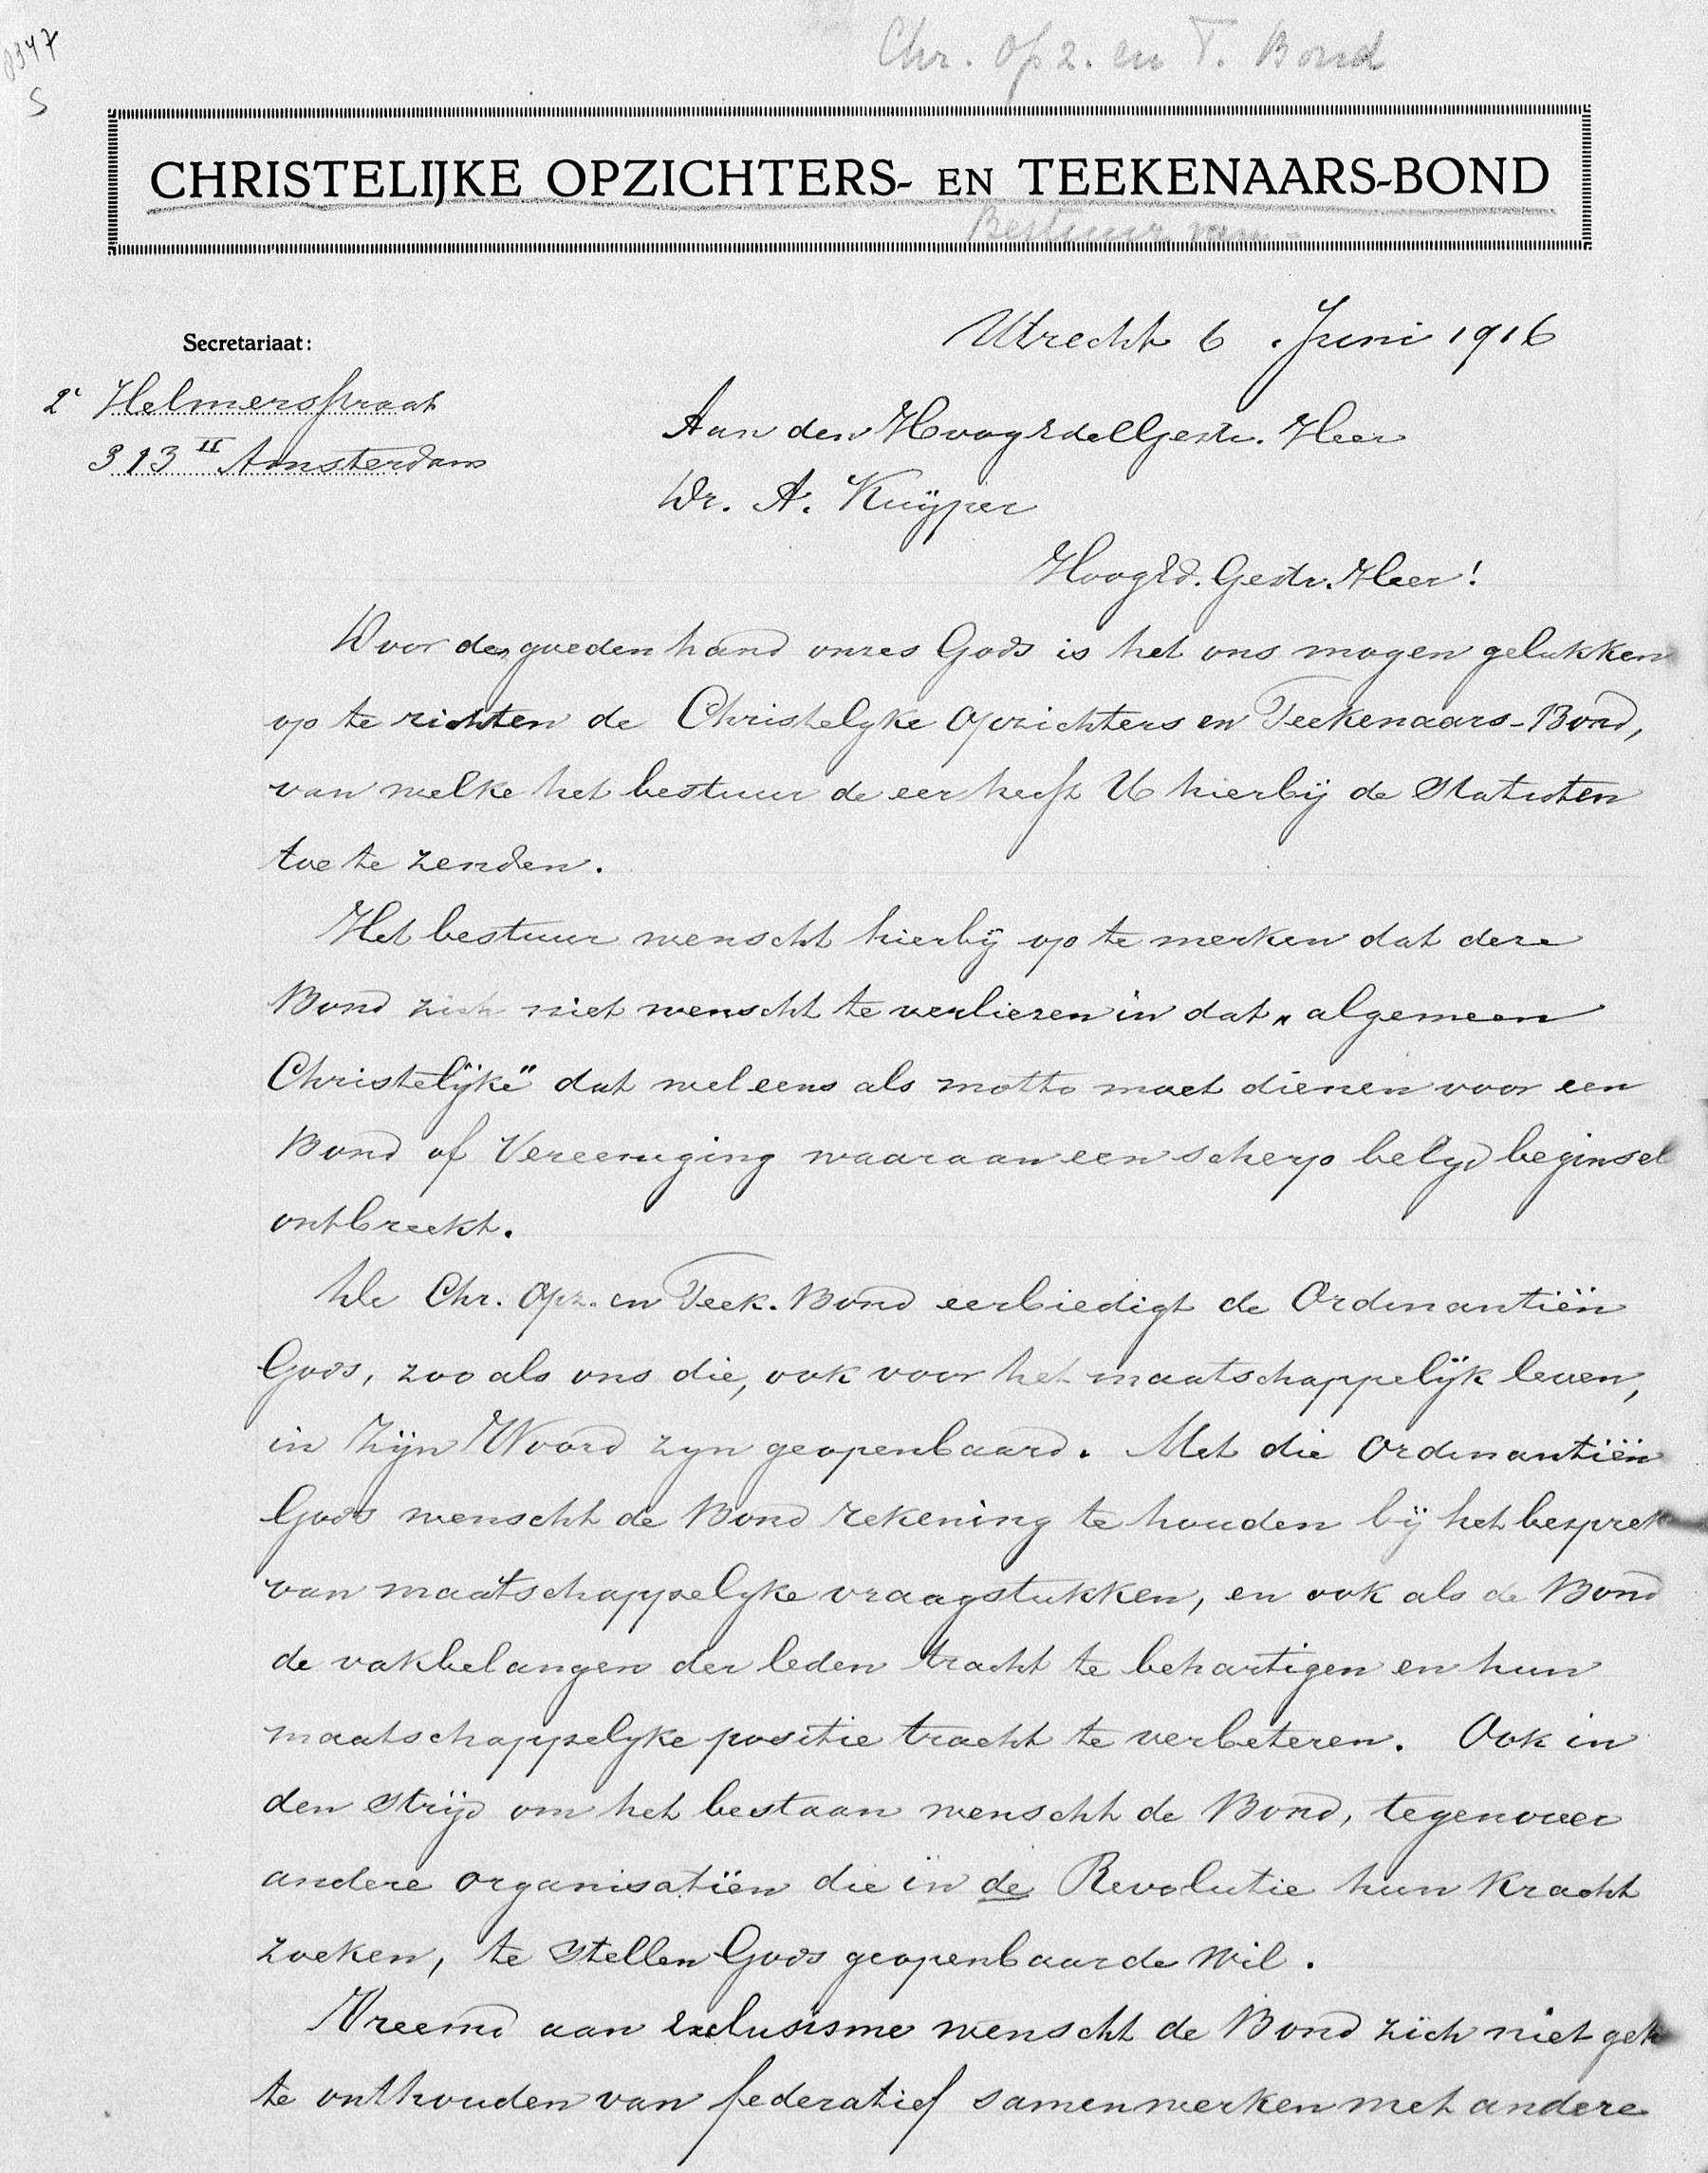 8347
S
Chr. Opz. en T. Bond
CHRISTELIJKE OPZICHTERS- EN TEEKENAARS-BOND
Bestuur van -
Utrecht 6 Juni 1916
Secretariaat:
2e Helmersstraat
313 II Amsterdam
Aan den HoogEdelGestr. Heer
Dr. A. Kuÿper
HoogEd. Gestr. Heer!
Door de goeden hand onzes Gods is het ons mogen gelukken
op te richten de Christelyke Opzichters en Teekenaars-Bond,
van welke het bestuur de eer heeft U hierbÿ de Statuten
toe te zenden.
Het bestuur wenscht hierbÿ op te merken dat deze
Bond zich niet wenscht te verliezen in dat „algemeen
Christelÿke" dat wel eens als motto moet dienen voor een
Bond of Vereeniging waaraan een scherp belyd beginsel
ontbreekt.
De Chr. Opz. en Teek. Bond eerbiedigt de Ordinantiën
Gods, zooals ons die, ook voor het maatschappelÿk leven,
in Zÿn Woord zyn geopenbaard. Met die Ordinantiën
Gods wenscht de Bond rekening te houden bÿ het besprek
van maatschappelyke vraagstukken, en ook als de Bond
de vakbelangen der leden tracht te behartigen en hun
maatschappelyke positie tracht te verbeteren. Ook in
den strÿd om het bestaan wenscht de Bond, tegenover
andere organisatiën die in de Revolutie hun kracht
zoeken, te stellen Gods geopenbaarde wil.
Vreemd aan exclusisme wenscht de Bond zich niet geh
te onthouden van federatief samenwerken met andere